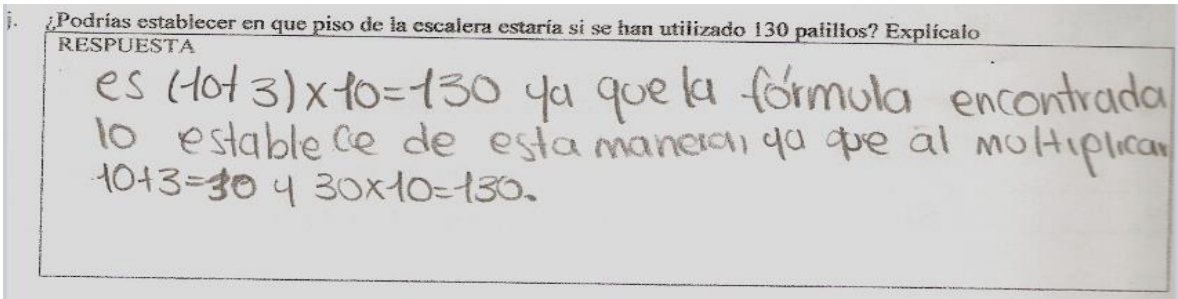 j. ¿Podrías establecer en que piso de la escalera estaría si se han utilizado 130 palillos? Explícalo
RESPUESTA
es (10+3)x10=130 ya que la fórmula encontrada
lo establece de esta manera, ya que al multiplicar
10+3=30 y 30x10=130.